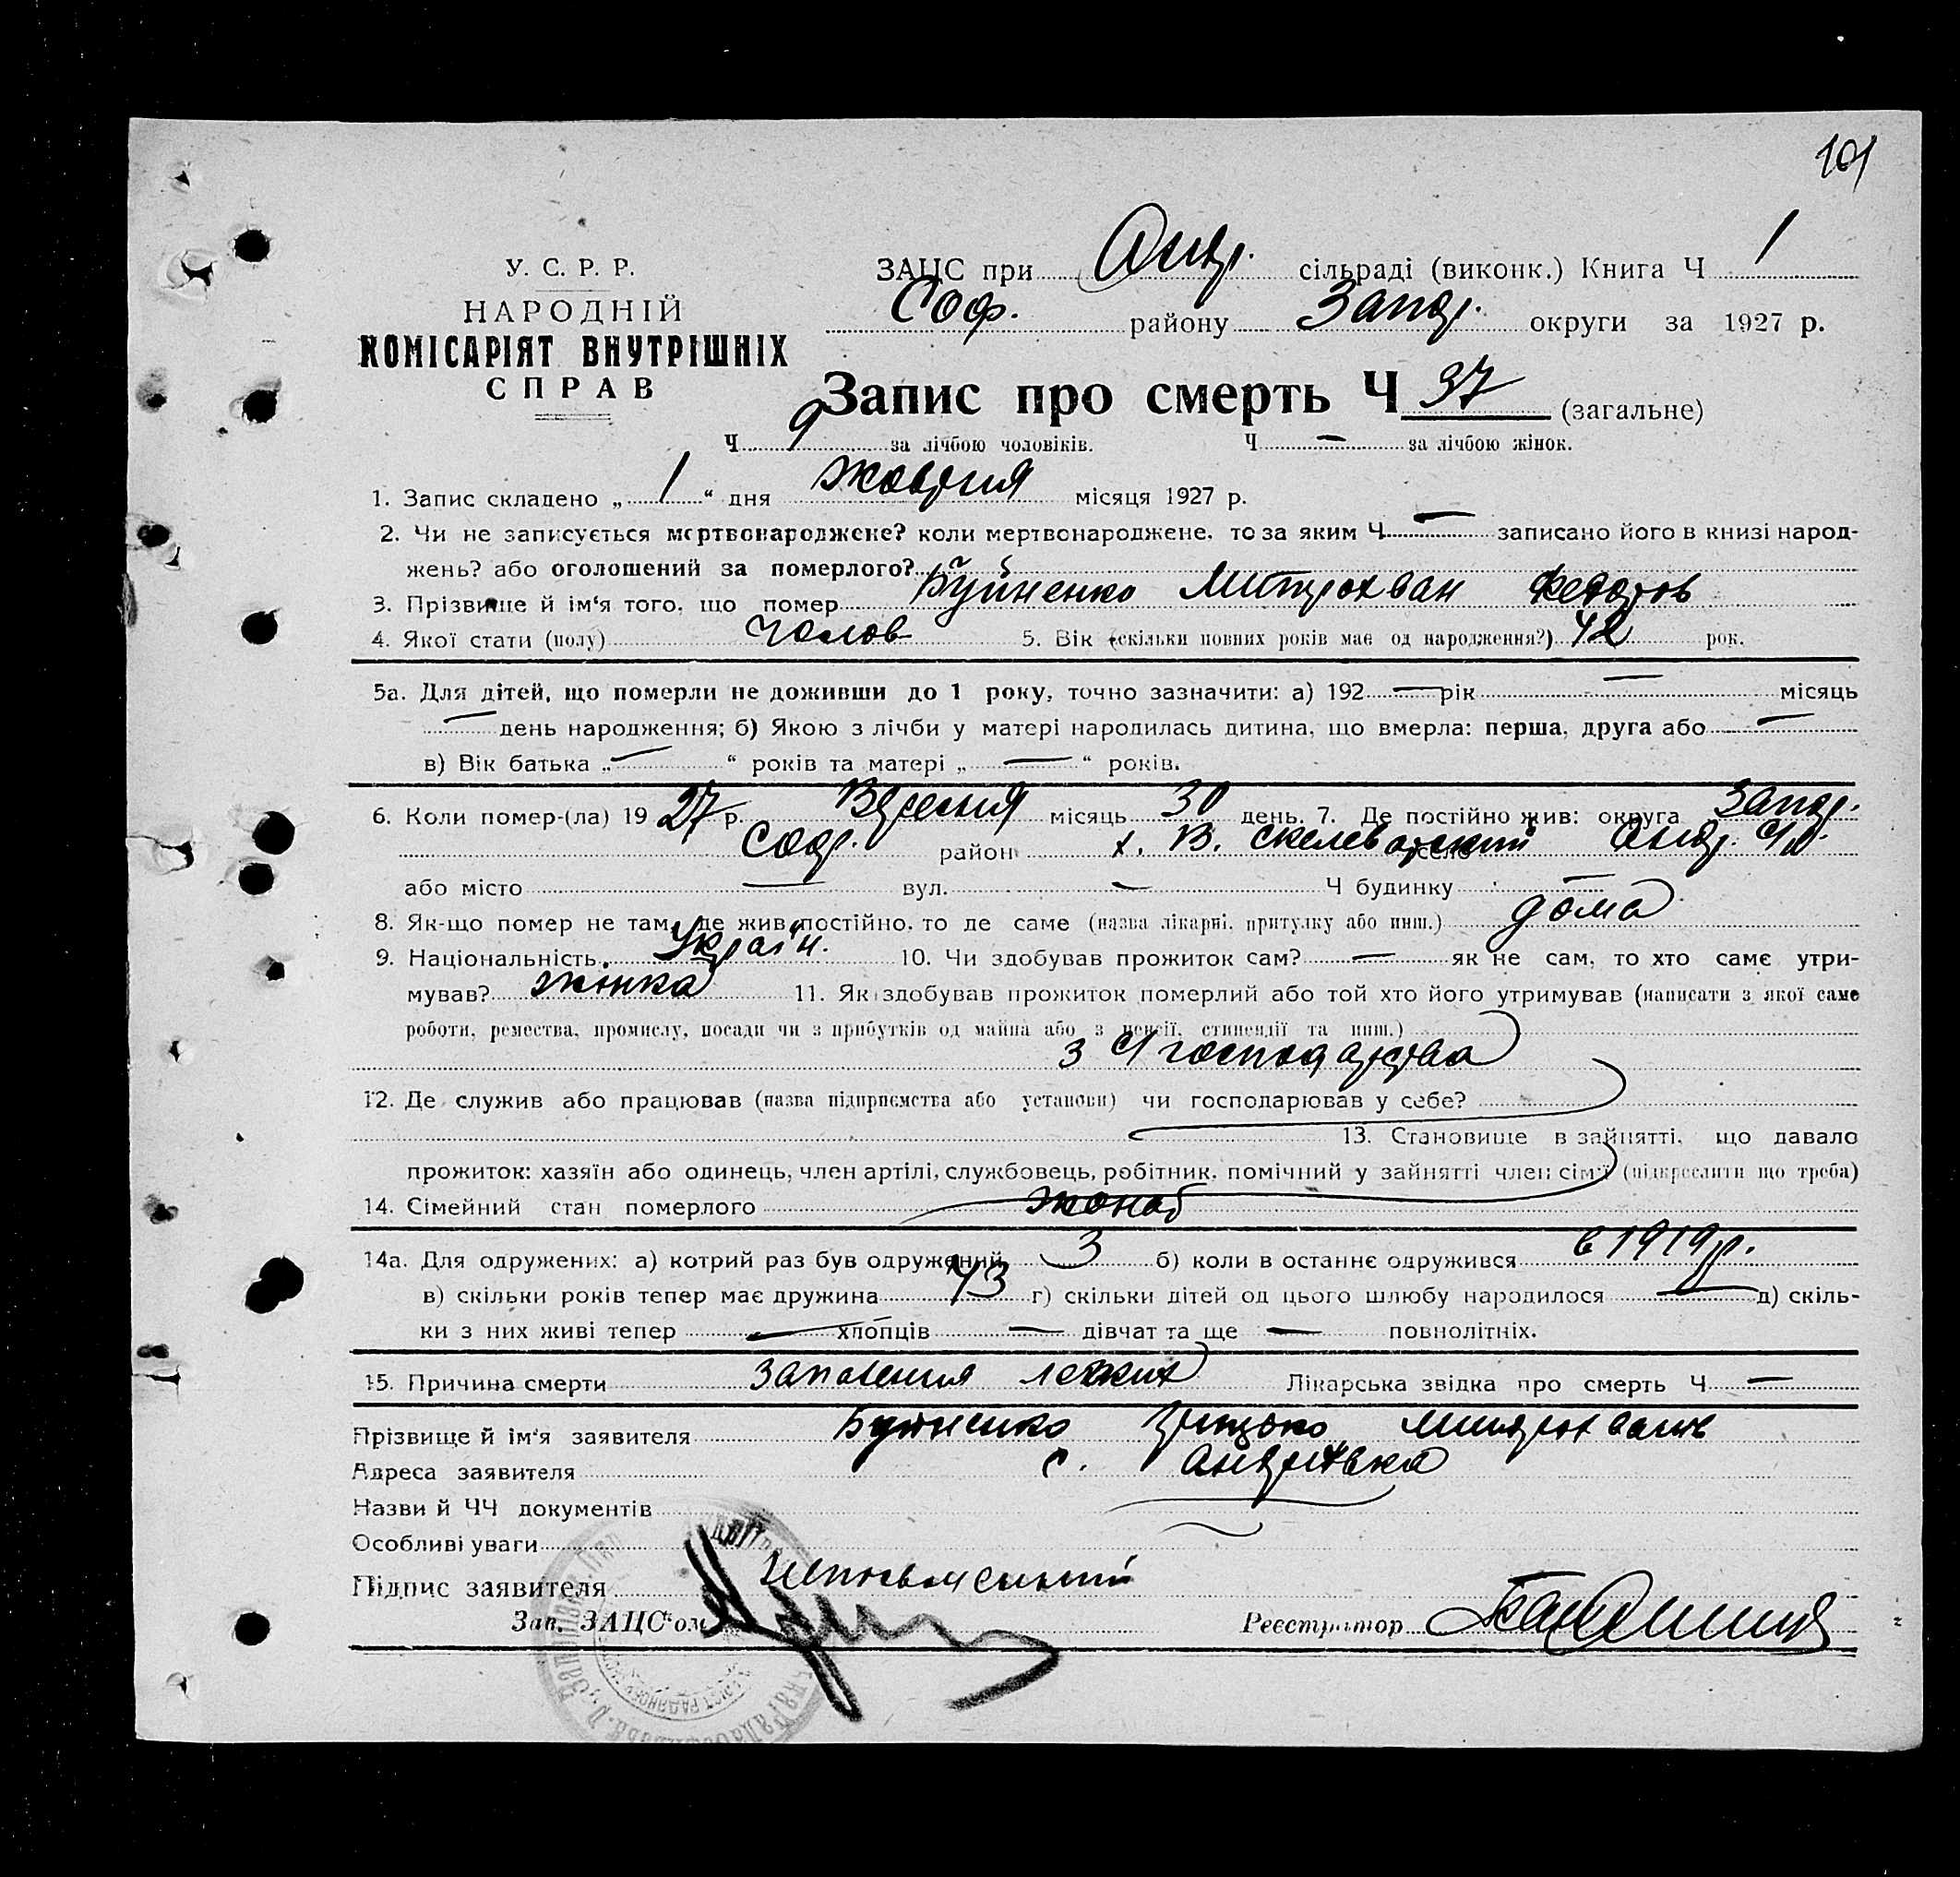 101
У. С. Р. Р.
НАРОДНІЙ
КОМІСАРІЯТ ВНУТРІШНІХ
СПРАВ
ЗАЦС при Андр. сільраді (виконк.) Книга Ч 1
Соф. району Запор. округи за 1927 р.
Запис про смерть Ч 37 (загальне)
Ч 9 за лічбою чоловіків. Ч — за лічбою жінок.
1. Запис складено „ 1 “ дня жовтня місяця 1927 р.
2. Чи не записується мертвонароджене? коли мертвонароджене, то за яким Ч — записано його в книзі народ-
жень? або оголошений за померлого?
3. Прізвище й ім‘я того, що помер Буйненко Митрохван Федоров
4. Якої стати (полу) чолов 5. Вік (скільки повних років має од народження?) 42 рок.
5а. Для дітей, що померли не доживши до 1 року, точно зазначити: а) 192 — рік — місяць
— день народження; б) Якою з лічби у матері народилась дитина, що вмерла: перша, друга або —
в) Вік батька „ — “ років та матері „ — “ років.
6. Коли помер-(ла) 19 27 р. Вересня місяць 30 день. 7. Де постійно жив: округа Запор.
Соф. район х. В. село Андр. с/р.
або місто — вул. — Ч будинку —
8. Як-що помер не там, де жив постійно, то де саме (назва лікарні, притулку або инш.) дома
9. Національність Україн. 10. Чи здобував прожиток сам? — як не сам, то хто саме утри-
мував? жінка 11. Як здобував прожиток померлий або той хто його утримував (написати з якої саме
роботи, ремества, промислу, посади чи з прибутків од майна або з пенсії, стипендії та инш.)
з С/господарства
12. Де служив або працював (назва підприємства або установи) чи господарював у себе?
13. Становище в зайнятті, що давало
прожиток: хазяїн або одинець, член артілі, службовець, робітник, помічний у зайнятті член сім‘ї (підкреслити що треба)
14. Сімейний стан померлого жонат
14а. Для одружених: а) котрий раз був одружений 3 б) коли в останнє одружився в 1919 р.
в) скільки років тепер має дружина 43 г) скільки дітей од цього шлюбу народилося — д) скіль-
ки з них живі тепер — хлопців — дівчат та ще — повнолітніх.
15. Причина смерти запалення легких Лікарська звідка про смерть Ч —
Прізвище й ім‘я заявителя Буйненко Грицько Митрохванів
Адреса заявителя с. Андріївка
Назви й ЧЧ документів
Особливі уваги
Підпис заявителя
Зав. ЗАЦС‘ом Реєстратор